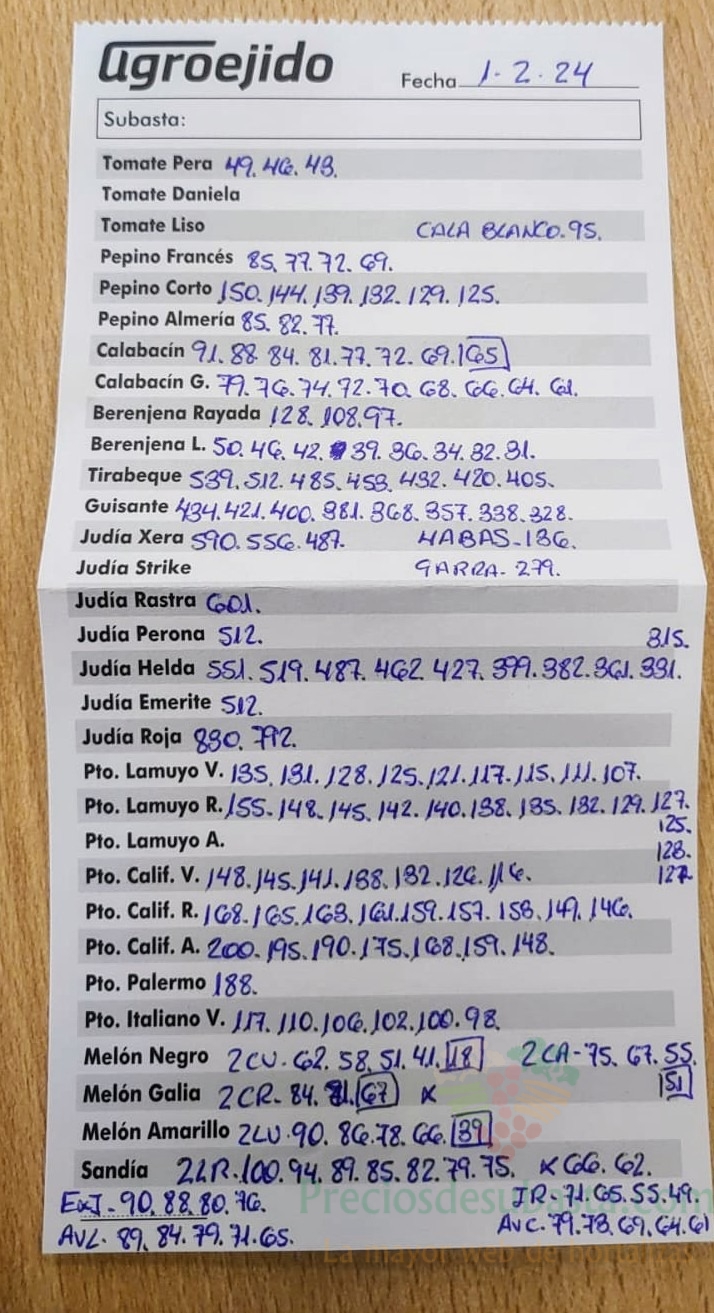 agroejido Fecha 1-2-24
Subasta:
Tomate Pera 49. 46. 43.
Tomate Daniela
Tomate Liso CALA BLANCO. 95.
Pepino Francés 85. 77. 72. 69.
Pepino Corto 150. 144. 139. 132. 129. 125.
Pepino Almería 85. 82. 77.
Calabacín 91. 88. 84. 81. 77. 72. 69. 65
Calabacín G. 79. 76. 74. 72. 70. 68. 66. 64. 61.
Berenjena Rayada 128. 108. 97.
Berenjena L. 50. 46. 42. 39. 36. 34. 32. 31.
Tirabeque 539. 512. 485. 453. 432. 420. 405.
Guisante 434. 421. 400. 381. 368. 357. 338. 328.
Judía Xera 590. 556. 487. HABAS-136.
Judía Strike GARRA- 279.
Judía Rastra 601.
Judía Perona 512. 315.
Judía Helda 551. 519. 487. 462 427. 399. 382. 361. 331.
Judía Emerite 512.
Judía Roja 830. 792.
Pto. Lamuyo V. 135. 131. 128. 125. 121. 117. 115. 111. 107.
Pto. Lamuyo R. 155. 148. 145. 142. 140. 138. 135. 132. 129. 127.
125.
Pto. Lamuyo A.
123.
Pto. Calif. V. 148. 145. 141. 138. 132. 126. 116. 127
Pto. Calif. R. 168. 165. 163. 161. 159. 157. 153. 149. 146.
Pto. Calif. A. 200. 195. 190. 175. 168. 159. 148.
Pto. Palermo 188.
Pto. Italiano V. 117. 110. 106. 102. 100. 98.
Melón Negro 2CU- 62. 58. 51. 41. 18 2CA-75. 67. 55.
Melón Galia 2CR- 84. 71. 67 x 51
Melón Amarillo 2LU-90. 86. 78. 66. 39
Sandía 2LR-100. 94. 89. 85. 82. 79. 75. x 66. 62.
ExJ-90. 88. 80. 76. JR-71. 65. 55. 49.
AVL- 89. 84. 79. 71. 65. AVC-79. 73. 69. 64. 61
Preciosdesubasta.com